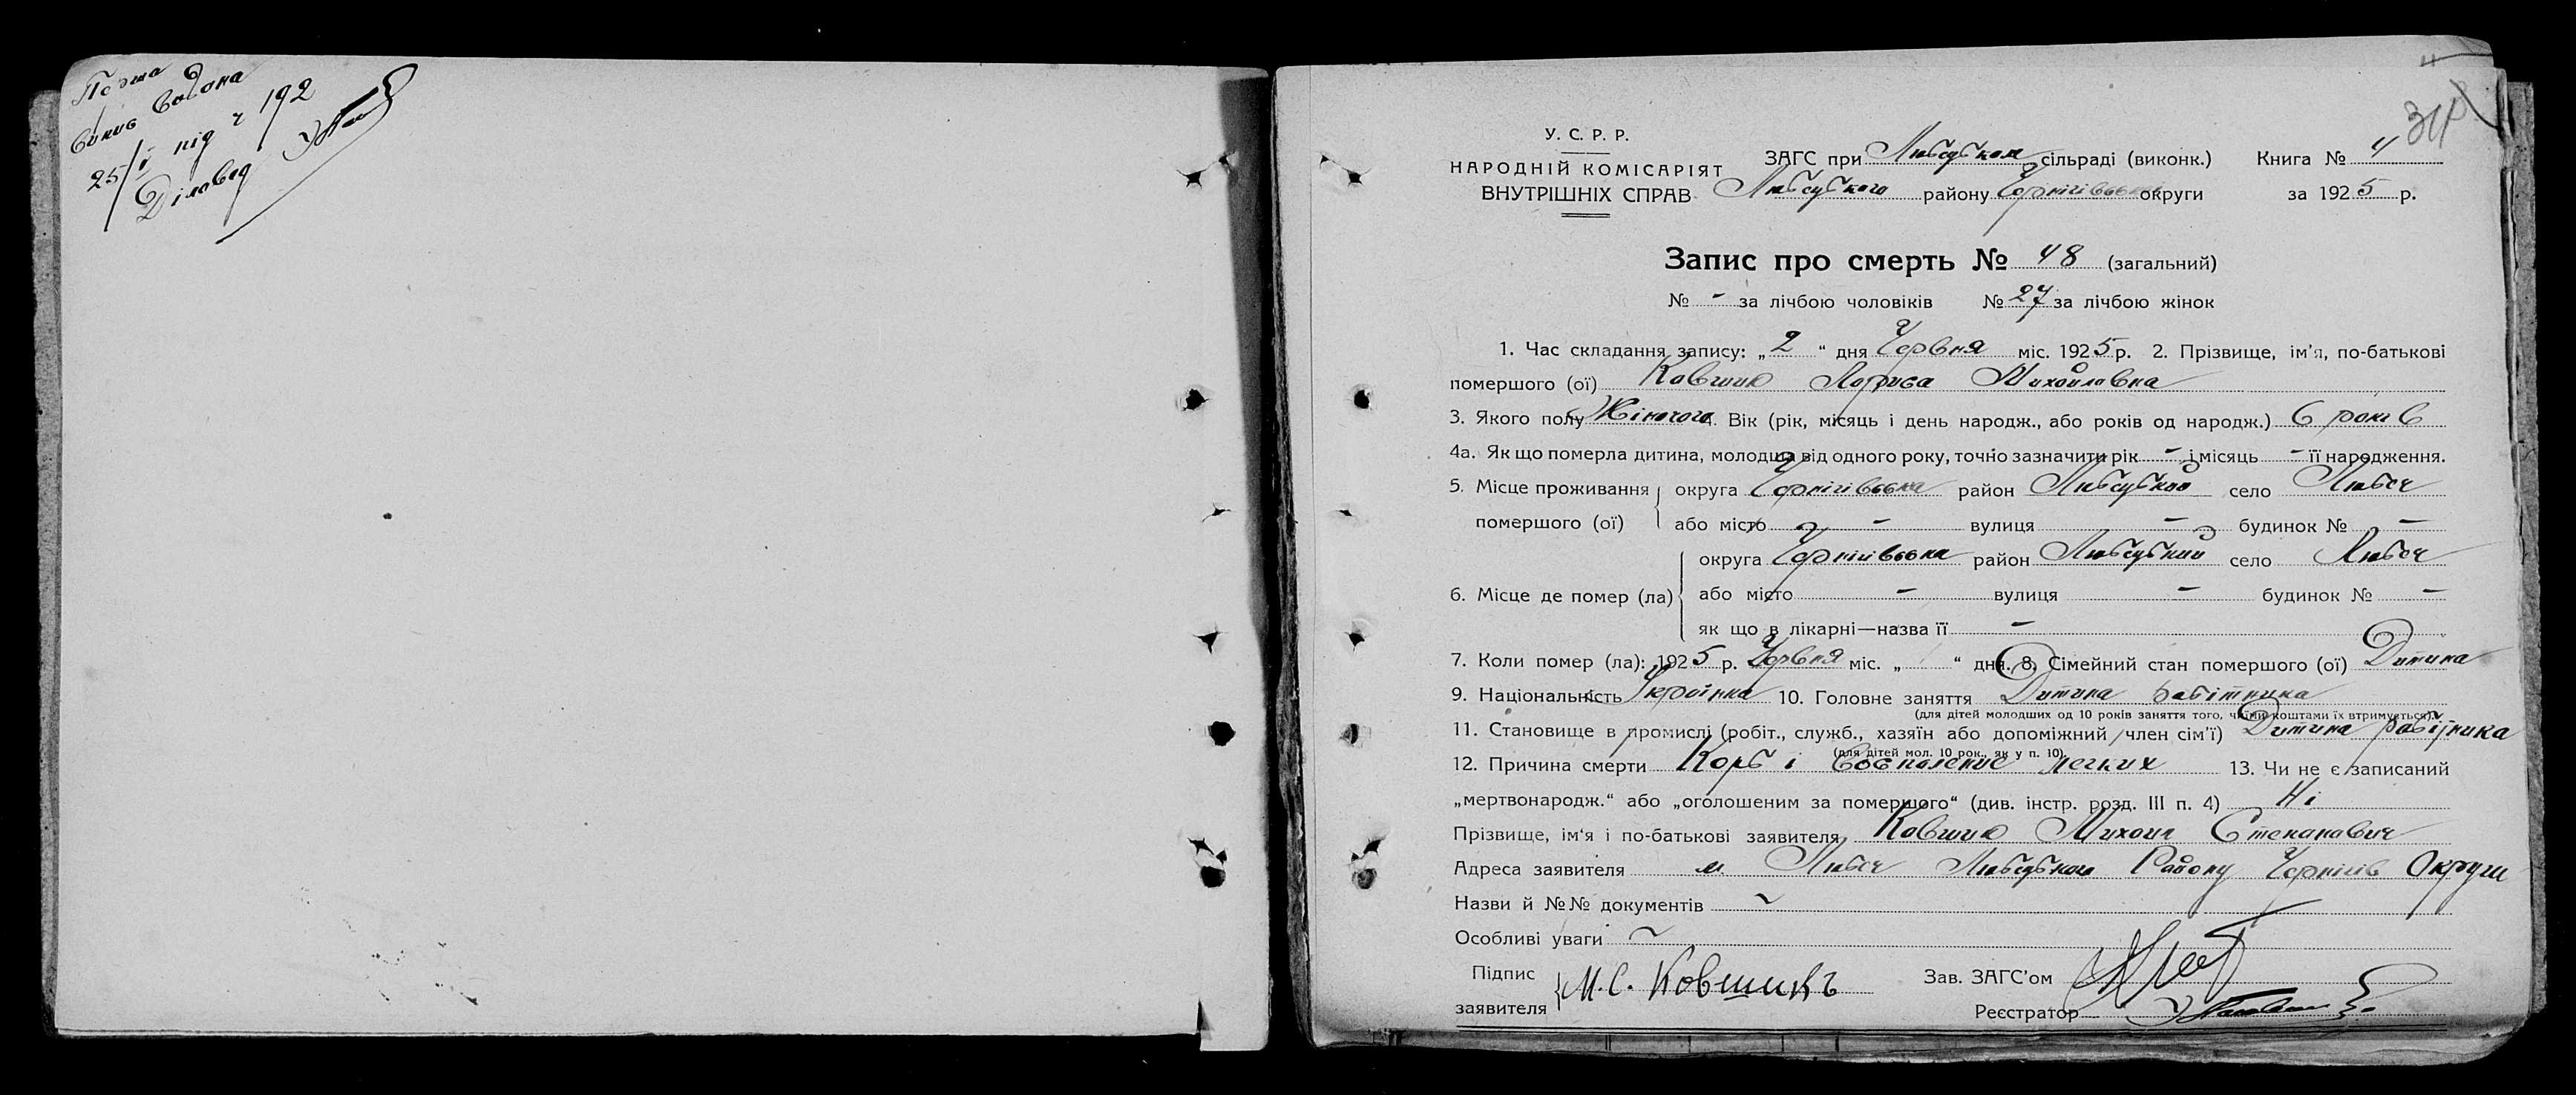 Перша
випис видана
25/V під ч 192
Діловод
311
У. С. Р. Р.
НАРОДНІЙ КОМІСАРІЯТ
ВНУТРІШНІХ СПРАВ
ЗАГС при Любецьком сільраді (виконк.) Книга № 4
Любецького району Чернігівської округи за 1925 р.
Запис про смерть № 48 (загальний)
№ - за лічбою чоловіків № 27 за лічбою жінок
1. Час складання запису: „2“ дня Червня міс. 1925 р. 2. Прізвище, ім'я, по-батькові
помершого (ої) Ковшик Лариса Михайловна
3. Якого полу Жіночого 4. Вік (рік, місяць і день народж., або років од народж.) 6 років
4а. Як що померла дитина, молодша від одного року, точно зазначити рік - і місяць - її народження.
5. Місце проживання округа Чернігівська район Любецький село Любеч
помершого (ої) або місто - вулиця - будинок № -
округа Чернігівська район Любецький село Любеч
6. Місце де помер (ла) або місто - вулиця - будинок № -
як що в лікарні—назва її -
7. Коли помер (ла): 1925 р. Червня міс. „1“ дня. 8. Сімейний стан помершого (ої) Дитина
9. Національність Українка 10. Головне заняття Дитина робітника
(для дітей молодших од 10 років заняття того, чиїми коштами їх втримується).
11. Становище в промислі (робіт., служб., хазяїн або допоміжний член сім'ї) Дитина робітника
(для дітей мол. 10 рок., як у п. 10)
12. Причина смерти Корь і воспаление легких 13. Чи не є записаний
„мертвонародж.“ або „оголошеним за помершого“ (див. інстр. розд. III п. 4) Ні
Прізвище, ім'я і по-батькові заявителя Ковшик Михаил Степанович
Адреса заявителя м. Любеч Любецького Району Чернігів Округи
Назви й №№ документів ~
Особливі уваги ~
Підпис
заявителя М. С. Ковшикъ
Зав. ЗАГС'ом
Реєстратор